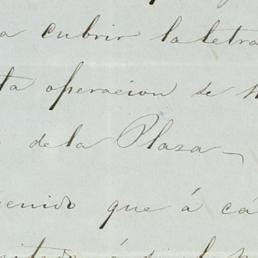 a cubrir la letra
ta operacion se
de la Plaza —
enido que á cá